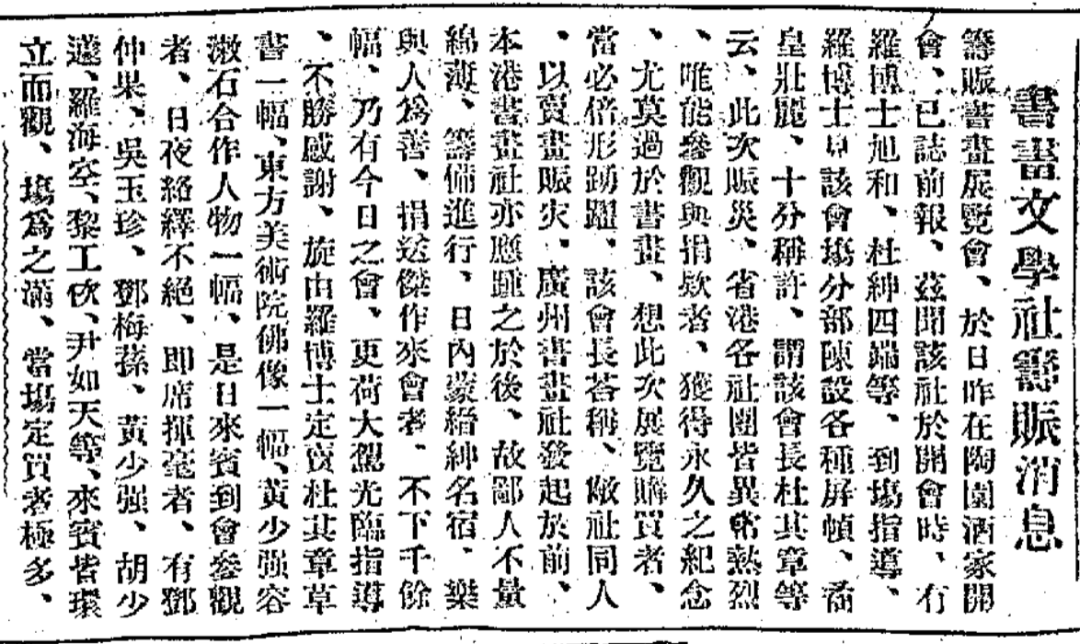 書畫文學社籌賑消息
籌賑書畫展覽會、於日昨在陶園酒家開
會、已誌前報、茲聞該社於開會時、有
羅博士旭和、杜紳四端等、到塲指導、
羅博士早該會塲分部陳設各種屏幀、喬
皇壯麗、十分稱許、謂該會長杜其章等
云、此次賑災、省港各社團皆異常熱烈
、唯能參觀與捐欵者、獲得永久之紀念
、尤莫過於書畫、想此次展覽購買者、
當必倍形踴躍、該會長荅稱、敝社同人
、以賣畫賑灾、廣州書畫社發起於前、
本港書畫社亦應踵之於後、故鄙人不量
綿薄、籌備進行、日內蒙縉紳名宿、樂
與人爲善、捐送傑作來會者、不下千餘
幅、乃有今日之會、更荷大駕光臨指導
、不勝感謝、旋由羅博士定賣杜其章草
書一幅、東方美術院佛像一幅、黃少强容
漱石合作人物一幅、是日來賓到會參觀
者、日夜絡繹不絕、即席揮毫者、有鄧
仲果、吳玉珍、鄧梅蓀、黃少强、胡少
蘧、羅海空、黎工佽、尹如天等、來賓皆環
立而觀、塲爲之滿、當塲定買者極多、